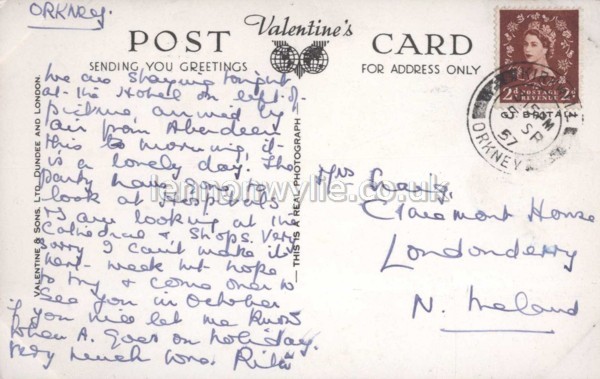 ORKNEY.
Valentine's
POST CARD
SENDING YOU GREETINGS
FOR ADDRESS ONLY
We are staying tonight
at the Hotel on left of
picture, arrived by
air from Aberdeen
this morning, it
is a lovely day. The
party have gone to
look at Hospitals
& I am looking at the
Cathedral & Shops. Very
sorry I can't make it
next week but hope
to try & come over to
see you in October
if you
let me know
when A. goes on holiday.
Very much love. Rita
VALENTINE & SONS, LTD., DUNDEE AND LONDON.
THIS IS A REAL PHOTOGRAPH
lennonwylie.co.uk
POSTAGE
REVENUE
2d 2d
5 SP
57
ORKNEY
Mrs Craig,
Claremont House
Londonderry
N. Ireland